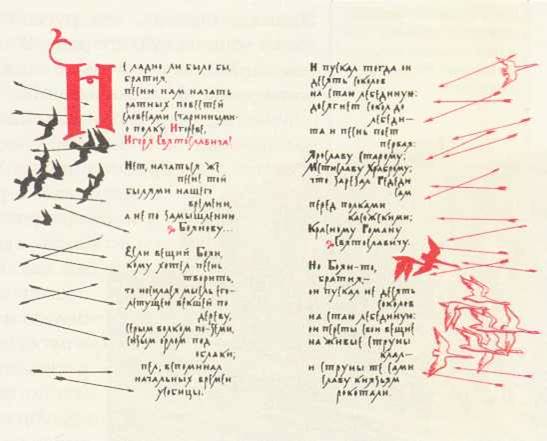 Не ладно ли было бы,
братия,
песни нам начать
ратных повестей
словесами старинными
о полку Игореве,
Игоря Святославича!
Нет, начаться же
песни той
былями нашего
времени,
а не по замышлению
Боянову...
Если вещий Боян,
кому хотел песнь
творить,
то носилась мысль его—
летущей векшей по
дереву,
серым волком по земи,
сизым орлом под
облаки;
пел, вспоминал
начальных времен
усобицы.
И пускал тогда он
десять соколов
на стаю лебединую:
досягнет сокол до
лебеди—
та и песнь поет
первая:
Ярославу старому;
Мстиславу Храброму;
что зарезал Редедю
сам
перед полками
касожскими;
Красному Роману
Святославичу.
Но Боян-то,
братия,—
он пускал не десять
соколов
на стаю лебединую:
он персты свои вещие
на живые струны
клал—
и струны те сами
славу князьям
рокотали.